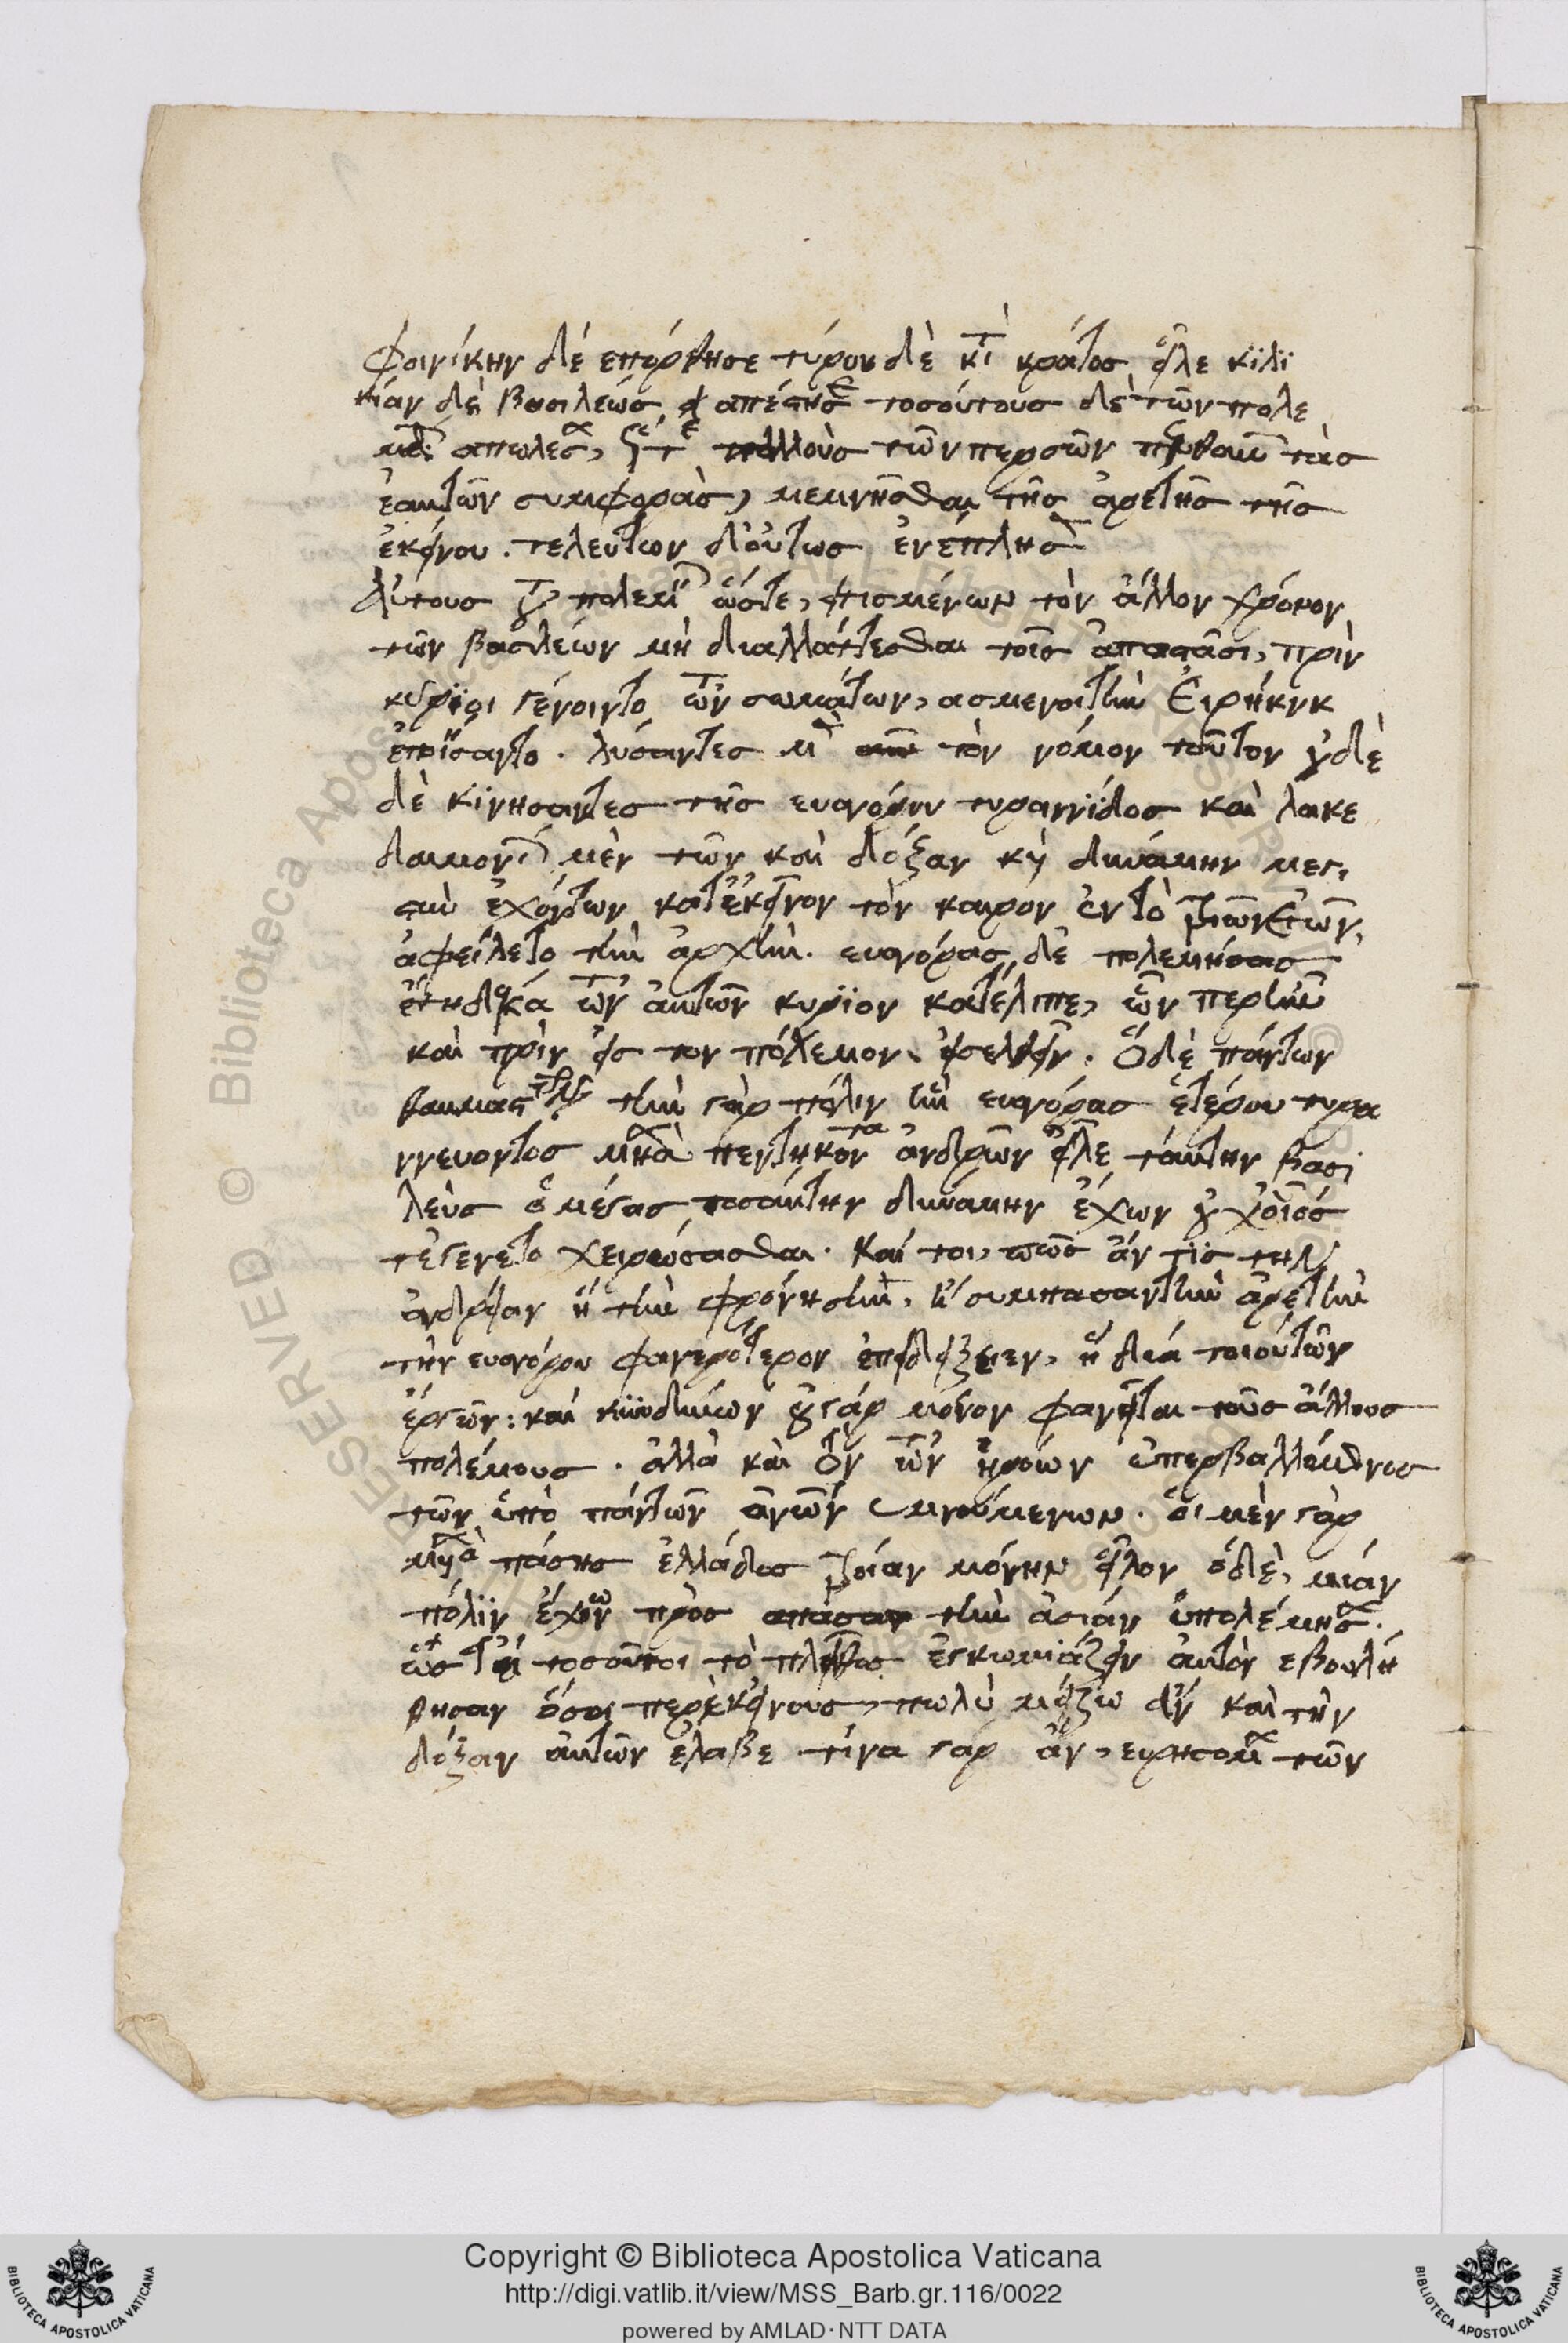 φοινίκην δέ επόρθησε τύρον δὲ κτ̀ κράτος εἷλε κϊλϊ
κίαν δὲ βασιλέως ἀπέστησε τοσούτους δὲ τῶν πολε
μί απώλεσ, πολλοὺς τῶν περσῶν πενθοῦν τὰς
ἑαυτῶν συμφορὰς, μεμνῆσθαι τῆς ἀρετῆς τῆς
ἐκείνου. τελευτων δ'οὕτως ἐνέπλησ
Αὐτους πολεμ ὥστε, εἰθισμένων τὸν ἄλλον χρόνον
τῶν βασιλέων μὴ διαλλάττεσθαι τοῖς ἀποστᾶσι, πρὶν
κύρϊοι γένοιντο τῶν σωμάτων, ασμενοι τὴν Εἰρήνην
ἐποιήσαντο. λύσαντες μ τὸν νόμον τοῦτον οὐδὲ
δὲ κινήσαντες τῆς ευαγόρου τυραννίδος καὶ λακε
δαιμονί μὲν τῶν καὶ δόξαν κὴ δυνάμην μεγι
στὴν ἐχόντων κατ' ἐκεῖνον τὸν καιρὸν ἐντὸ τριῶν ἐτῶν,
ἀφείλετο τὴν ἀρχὴν. ευαγόρας δὲ πολεμήσας
ἔτη δέκα τῶν ἀυτῶν κυρϊον κατέλιπε, ὧν περ ἦν
καὶ πρὶν εἰς τον πόλεμον εἰσελθεῖν. Ὃ δὲ πάντων
θαυμαστ τὴν γὰρ πόλιν ἣν ευαγόρας ἑτέρου τυρα
ννευοντος μετὰ πεντήκοντα ἀνδρῶν εἷλε τάυτην βασι
λεὺς ὁ μέγας τοσάυτην δυνάμην ἔχων οὐχ οἷός
τ' ἐγενετο χειρώσασθαι. Καί τοι, πῶς ἄν τϊς τὴν
ἀνδρείαν ἢ τὴν φρόνησιν, ἢ σύμπασαν τὴν ἀρετὴν
τὴν ευαγόρου φανερότερον ἐπιδείξειεν, ἢ διά τοιούτων
έργων: καὶ κινδύνων οὐ γάρ μόνον φανεῖται τοὺς ἄλλους
πολέμους. ἀλλὰ καὶ τὸν τῶν ἡρώων ὑπερβαλλόμενος
τῶν ὑπὸ πάντων ἀνων ὑμνούμενων. οἱ μὲν γὰρ
μετὰ πάσης ἑλλάδος τροίαν μόνην εἷλον ὁ δὲ, μιάν
πόλϊν ἔχων πρὸς απάσαν τὴν ἀσιάν ὑπολέμησ.
ὥστ' εἰ τοσοῦτοι τὸ πλῆθος ἐγκωμιάζειν ἀυτὸν εβουλή
θησαν ὅσοι περ ἐκείνους, πολὺ μείζω ἂν καὶ τὴν
δόξαν ἀυτῶν ἔλαβε τίνα γαρ ἂν, ευρησομ τῶν
Copyright © Biblioteca Apostolica Vaticana
http://digi.vatlib.it/view/MSS_Barb.gr.116/0022
powered by AMLAD·NTT DATA